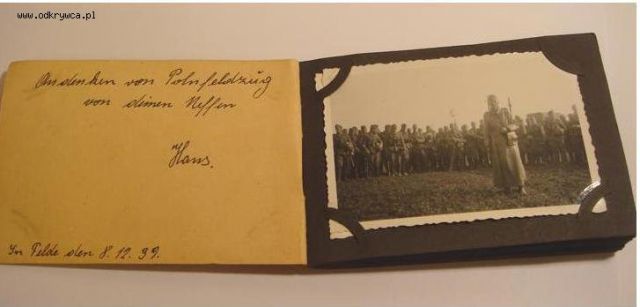 www.odkrywca.pl
Andenken von Polnfeldzug
von deinen Neffen
Hans.
In Felde den 8.12.39.